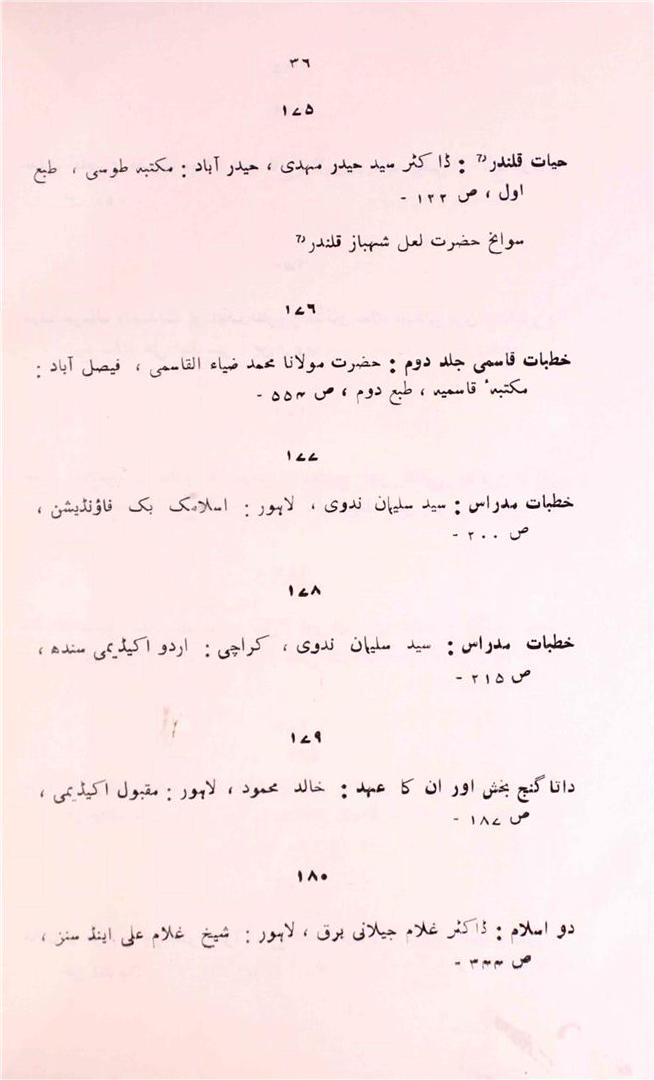 ۳۶
۱۷۵
حیات قلندرؒ : ڈاکٹر سید حیدر مہدی ، حیدر آباد : مکتبہ طوسی ، طبع
اول ، ص ۱۲۲ -
سوانح حضرت لعل شہباز قلندرؒ
۱۷۶
خطبات قاسمی جلد دوم : حضرت مولانا محمد ضیاء القاسمی ، فیصل آباد :
مکتبۂ قاسمیہ ، طبع دوم ، ص ۵۵۴ -
۱۷۷
خطبات مدراس : سید سلیمان ندوی ، لاہور : اسلامک بک فاؤنڈیشن ،
ص ۲۰۰ -
۱۷۸
خطبات مدراس : سید سلیمان ندوی ، کراچی : اردو اکیڈیمی سندھ ،
ص ۲۱۵ -
۱۷۹
داتا گنج بخش اور ان کا عہد : خالد محمود ، لاہور : مقبول اکیڈیمی ،
ص ۱۸۷ -
۱۸۰
دو اسلام : ڈاکٹر غلام جیلانی برق ، لاہور : شیخ غلام علی اینڈ سنز ،
ص ۳۴۴ -